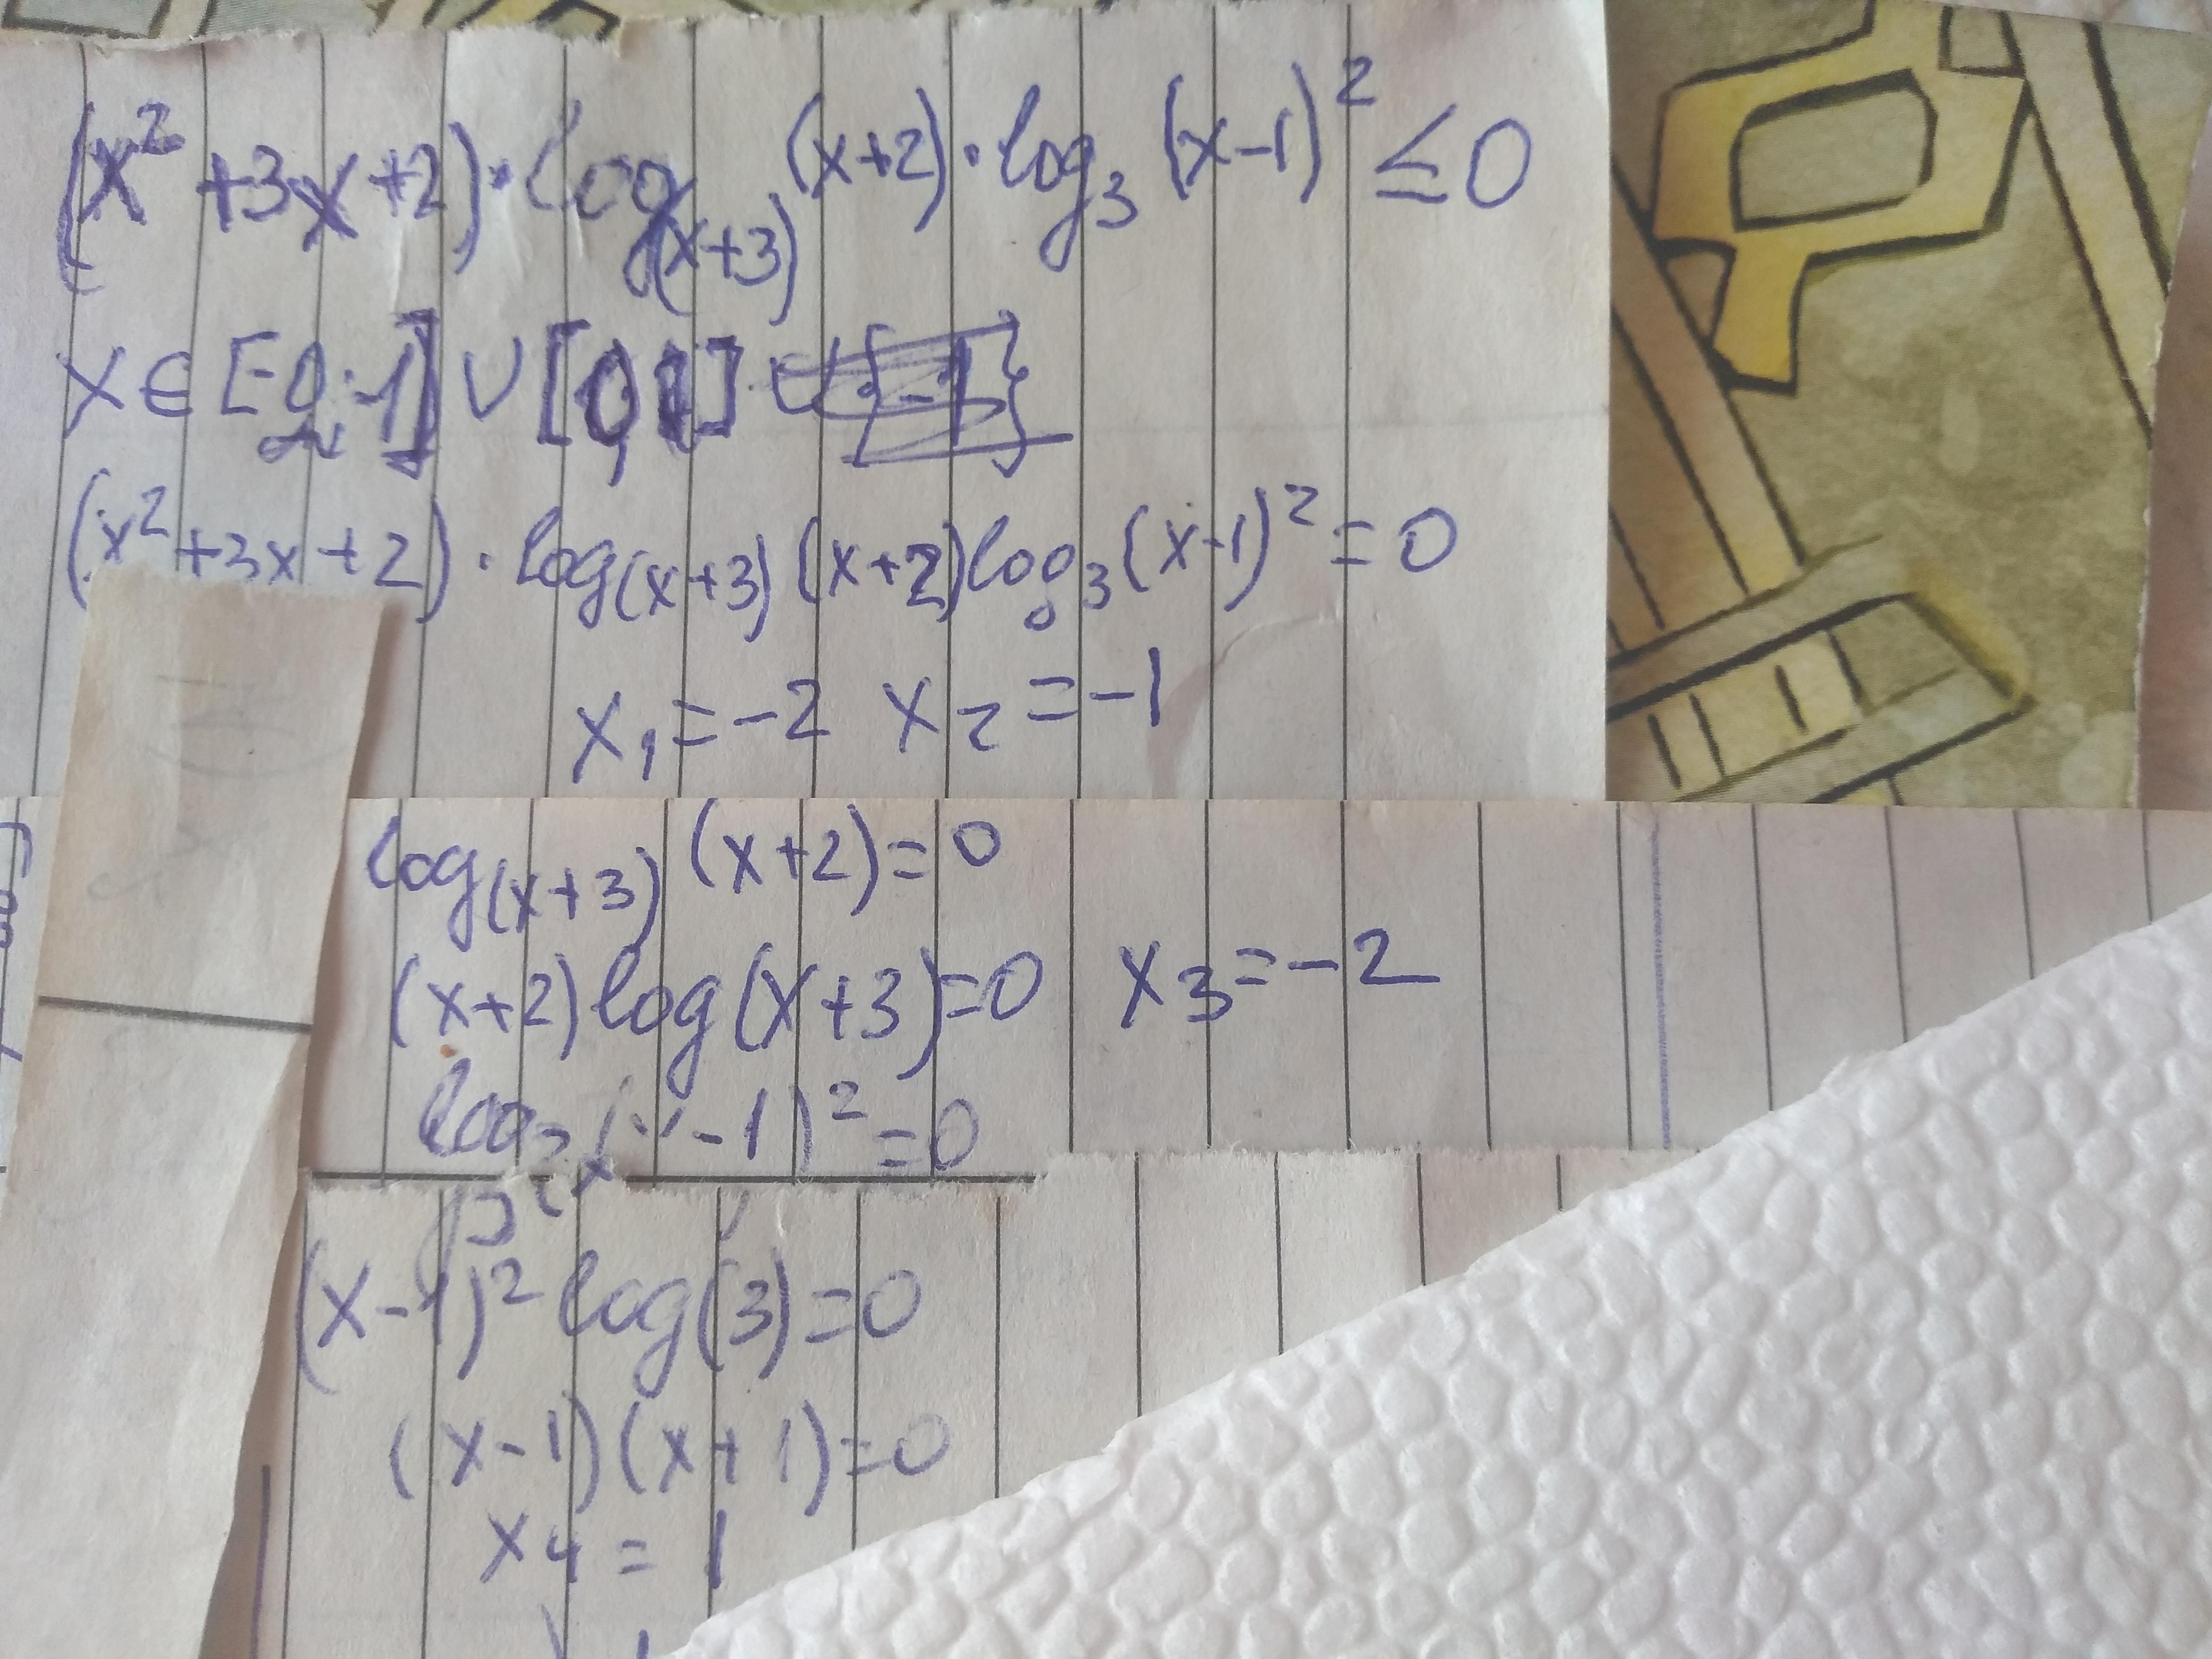 (x² + 3x + 2) · log₍ₓ₊₃₎ (x+2) · log₃ (x-1)² ≤ 0
x ∈ [-2; -1] ∪ [0, 1]
(x² + 3x + 2) · log₍ₓ₊₃₎ (x+2) log₃ (x-1)² = 0
x₁ = -2 x₂ = -1
log₍ₓ₊₃₎ (x+2) = 0
(x+2) log (x+3) = 0 x₃ = -2
log₃ (x-1)² = 0
(x-1)² log(3) = 0
(x-1)(x+1) = 0
x₄ = 1